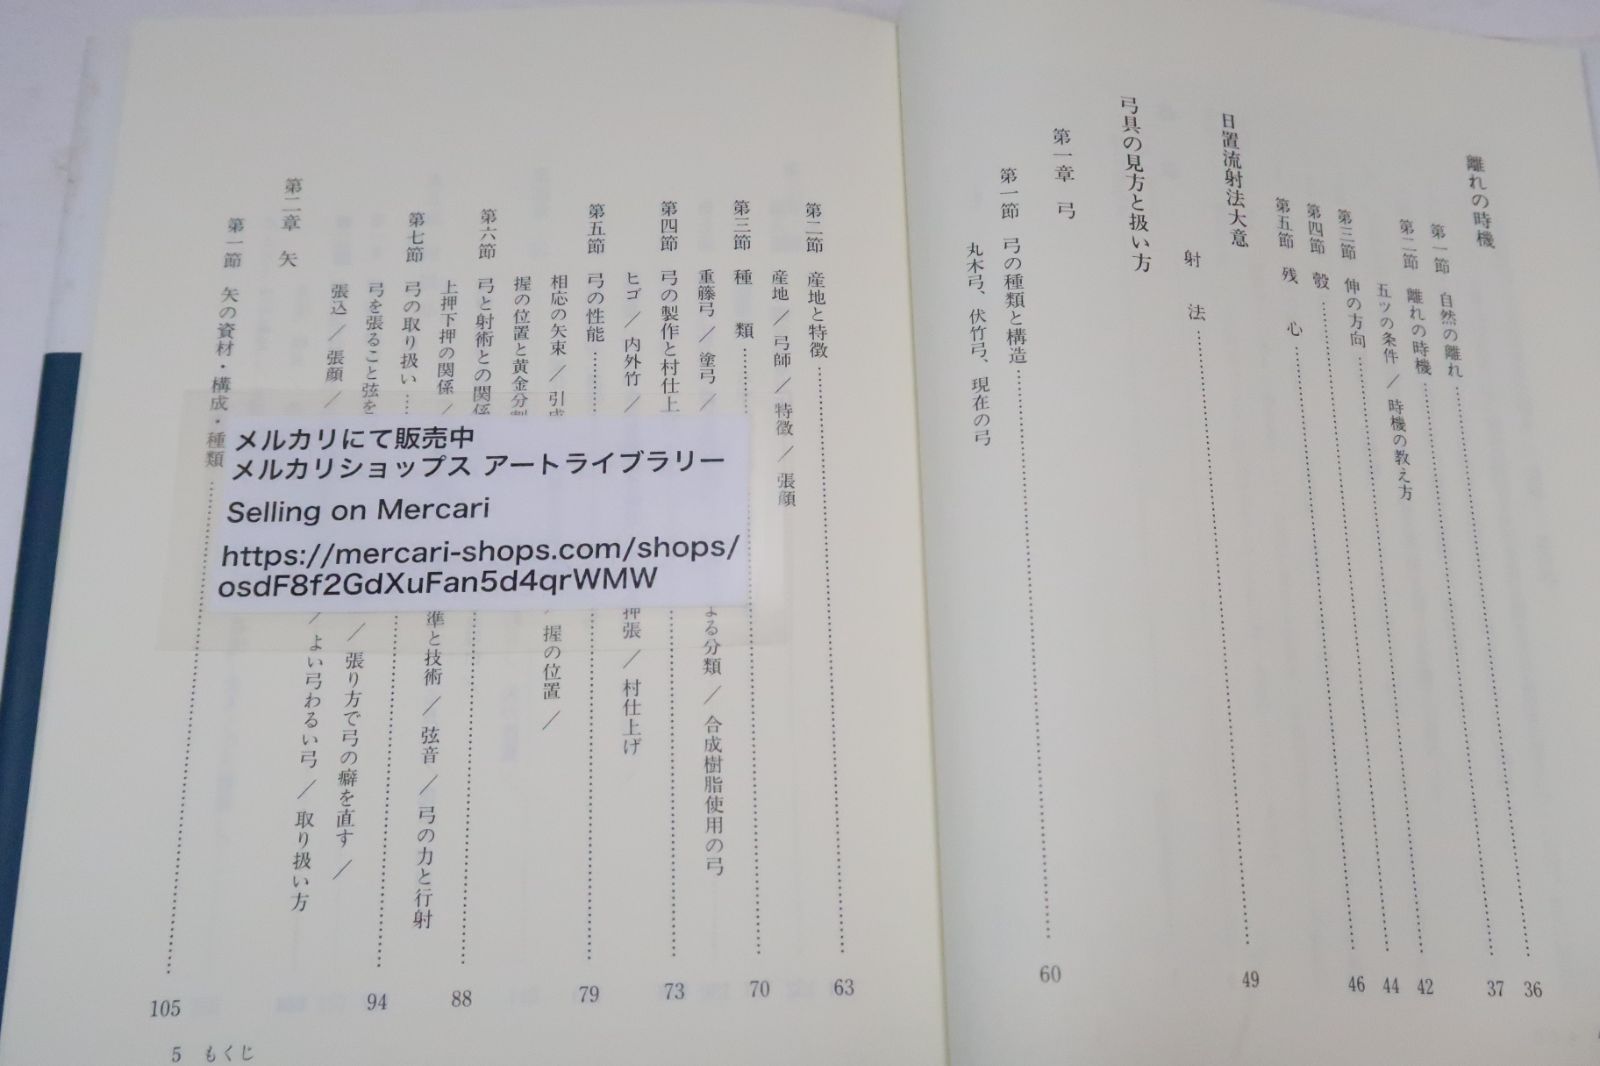 離れの時機
第一節 自然の離れ 36
第二節 離れの時機 37
五ツの条件/時機の教え方
第三節 伸の方向 42
第四節 彀 44
第五節 残心 46
日置流射法大意
射法 49
弓具の見方と扱い方
第一章 弓
第一節 弓の種類と構造 60
丸木弓、伏竹弓、現在の弓
第二節 産地と特徴 63
産地/弓師/特徴/張顔
第三節 種類 70
重藤弓/塗弓/ よる分類/合成樹脂使用の弓
第四節 弓の製作と村仕上 73
ヒゴ/内外竹/ 押張/村仕上げ
第五節 弓の性能 79
相応の矢束/引 /握の位置/
握の位置と黄金分割
第六節 弓と射術との関係 88
上押下押の関係/ 準と技術/弦音/弓の力と行射
第七節 弓の取り扱い 94
弓を張ること弦を /張り方で弓の癖を直す/
張込/張顔/ /よい弓わるい弓/取り扱い方
第二章 矢
第一節 矢の資材・構成・種類 105
5 もくじ
メルカリにて販売中
メルカリショップス アートライブラリー
Selling on Mercari
https://mercari-shops.com/shops/
osdF8f2GdXuFan5d4qrWMW